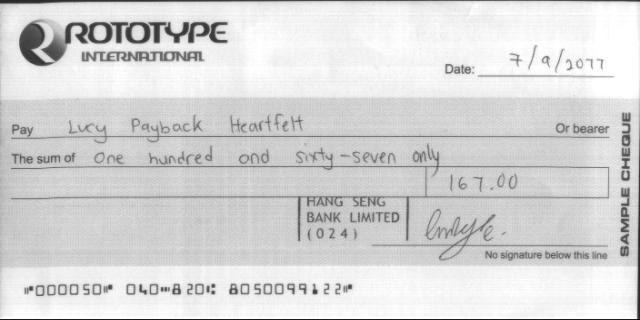 ROTOTYPE
INTERNATIONAL
Date: 7/9/2077
Pay Lucy Payback Heartfelt Or bearer
The sum of One hundred and sixty-seven only
167.00
HANG SENG
BANK LIMITED
(024)
No signature below this line
SAMPLE CHEQUE
⑈000050⑈ 040⑉820⑆ 8050099122⑈